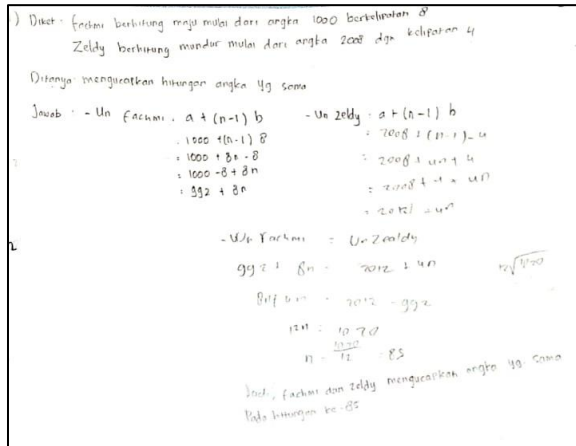 ) Diket : Fachmi berhitung maju mulai dari angka 1000 berkelipatan 8
Zeldy berhitung mundur mulai dari angka 2008 dgn kelipatan 4
Ditanya mengucapkan hitungan angka yg sama
Jawab : - Un Fachmi : a + (n-1) b
: 1000 + (n-1) 8
: 1000 + 8n - 8
: 1000 - 8 + 8n
: 992 + 8n
- Un Zeldy : a + (n-1) b
= 2008 + (n-1) - 4
= 2008 + 4n + 4
= 2008 + 4
= 2012
- Un Fachmi = Un Zealdy
992 + 8n = 2012 + 4n
8n + 4n = 2012 - 992
12n = 1020
n = 1020/12 = 85
Jadi, Fachmi dan Zeldy mengucapkan angka yg sama
Pada hitungan ke-85